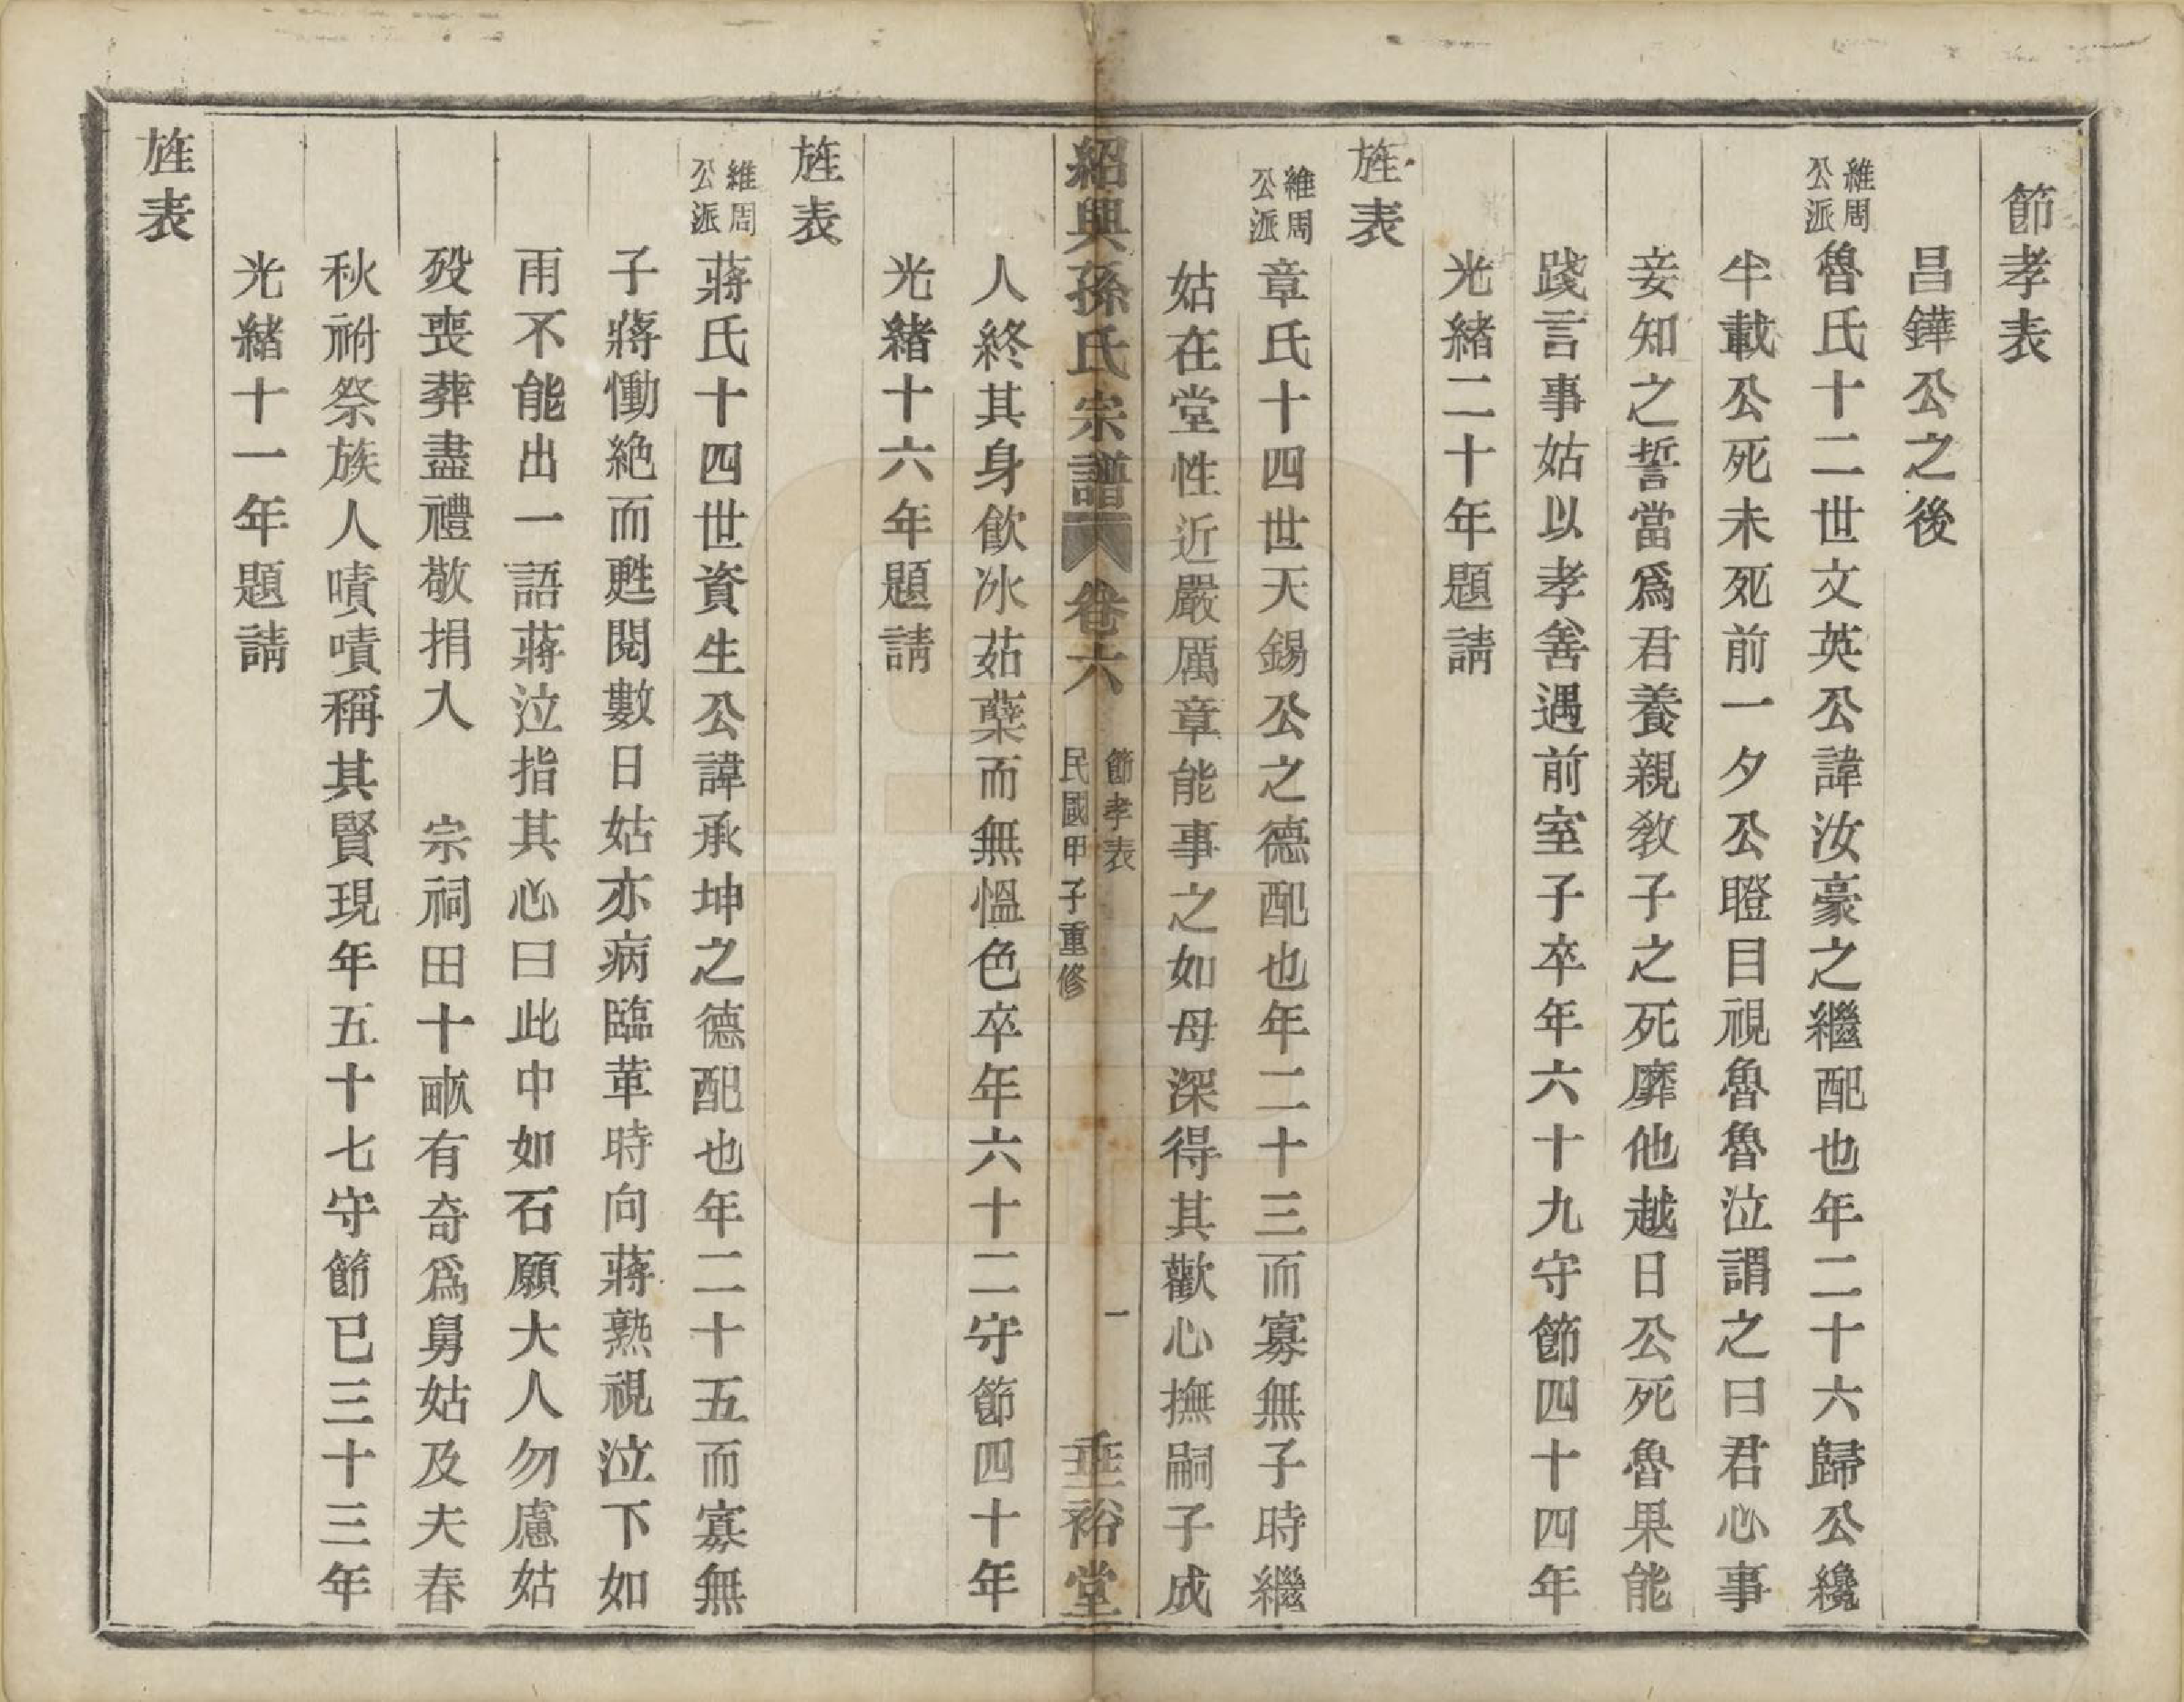 節孝表
昌鏵公之後
維周公派魯氏十二世文英公諱汝豪之繼配也年二十六歸公纔
半載公死未死前一夕公瞪目視魯魯泣謂之曰君心事
妾知之誓當爲君養親敎子之死靡他越日公死魯果能
踐言事姑以孝善遇前室子卒年六十九守節四十四年
光緖二十年題請
旌表
維周公派章氏十四世天錫公之德配也年二十三而寡無子時繼
姑在堂性近嚴厲章能事之如母深得其歡心撫嗣子成
紹興孫氏宗譜 卷六 節孝表 民國甲子重修 一 垂裕堂
人終其身飮冰茹蘖而無慍色卒年六十二守節四十年
光緖十六年題請
旌表
維周公派蔣氏十四世資生公諱承坤之德配也年二十五而寡無
子蔣慟絶而甦閱數日姑亦病臨革時向蔣熟視泣下如
雨不能出一語蔣泣指其心曰此中如石願大人勿慮姑
歿喪葬盡禮敬捐入 宗祠田十畝有奇爲舅姑及夫春
秋祔祭族人嘖嘖稱其賢現年五十七守節已三十三年
光緖十一年題請
旌表